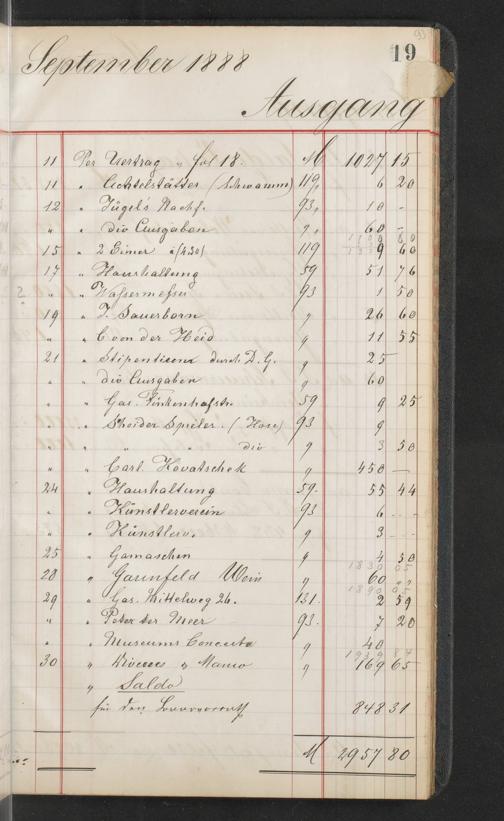 93
19
September 1888
Ausgang
11 Per Uertrag " fol 18. M 1027 15
11 " Achtelstätter (Schwamm) 119, 6 20
12 " Jügel's Nachf. 93, 10 -
" " div Ausgaben " 60 -
15 " 2 Eimer a (4.80) 119 9 60
17 " Haushaltung 59 51 76
" " Wassermesser 93 1 50
19 " J. Sauerborn " 26 60
" " C von der Heid " 11 55
21 " durch D. G. " 25
" " div Ausgaben " 60
" " Gas. Finkenhofstr. 59 9 25
" " (Hose) 93 9
" " " div " 3 50
" " Carl. Kovatschek " 450 -
24 " Haushaltung 59. 55 44
" " Künstlerverein 93 6 --
" " Künstlerv. " 3 --
25 " Gamaschen " 4 50
28 " Wein " 60 "
29 " Gas. Kittelweg 26. 131. 2 59
" " Peter ter Meer 93. 7 20
" " Museums Concerte " 40
30 " " " 169 65
" Saldo
für den 848 31
M 2957 80